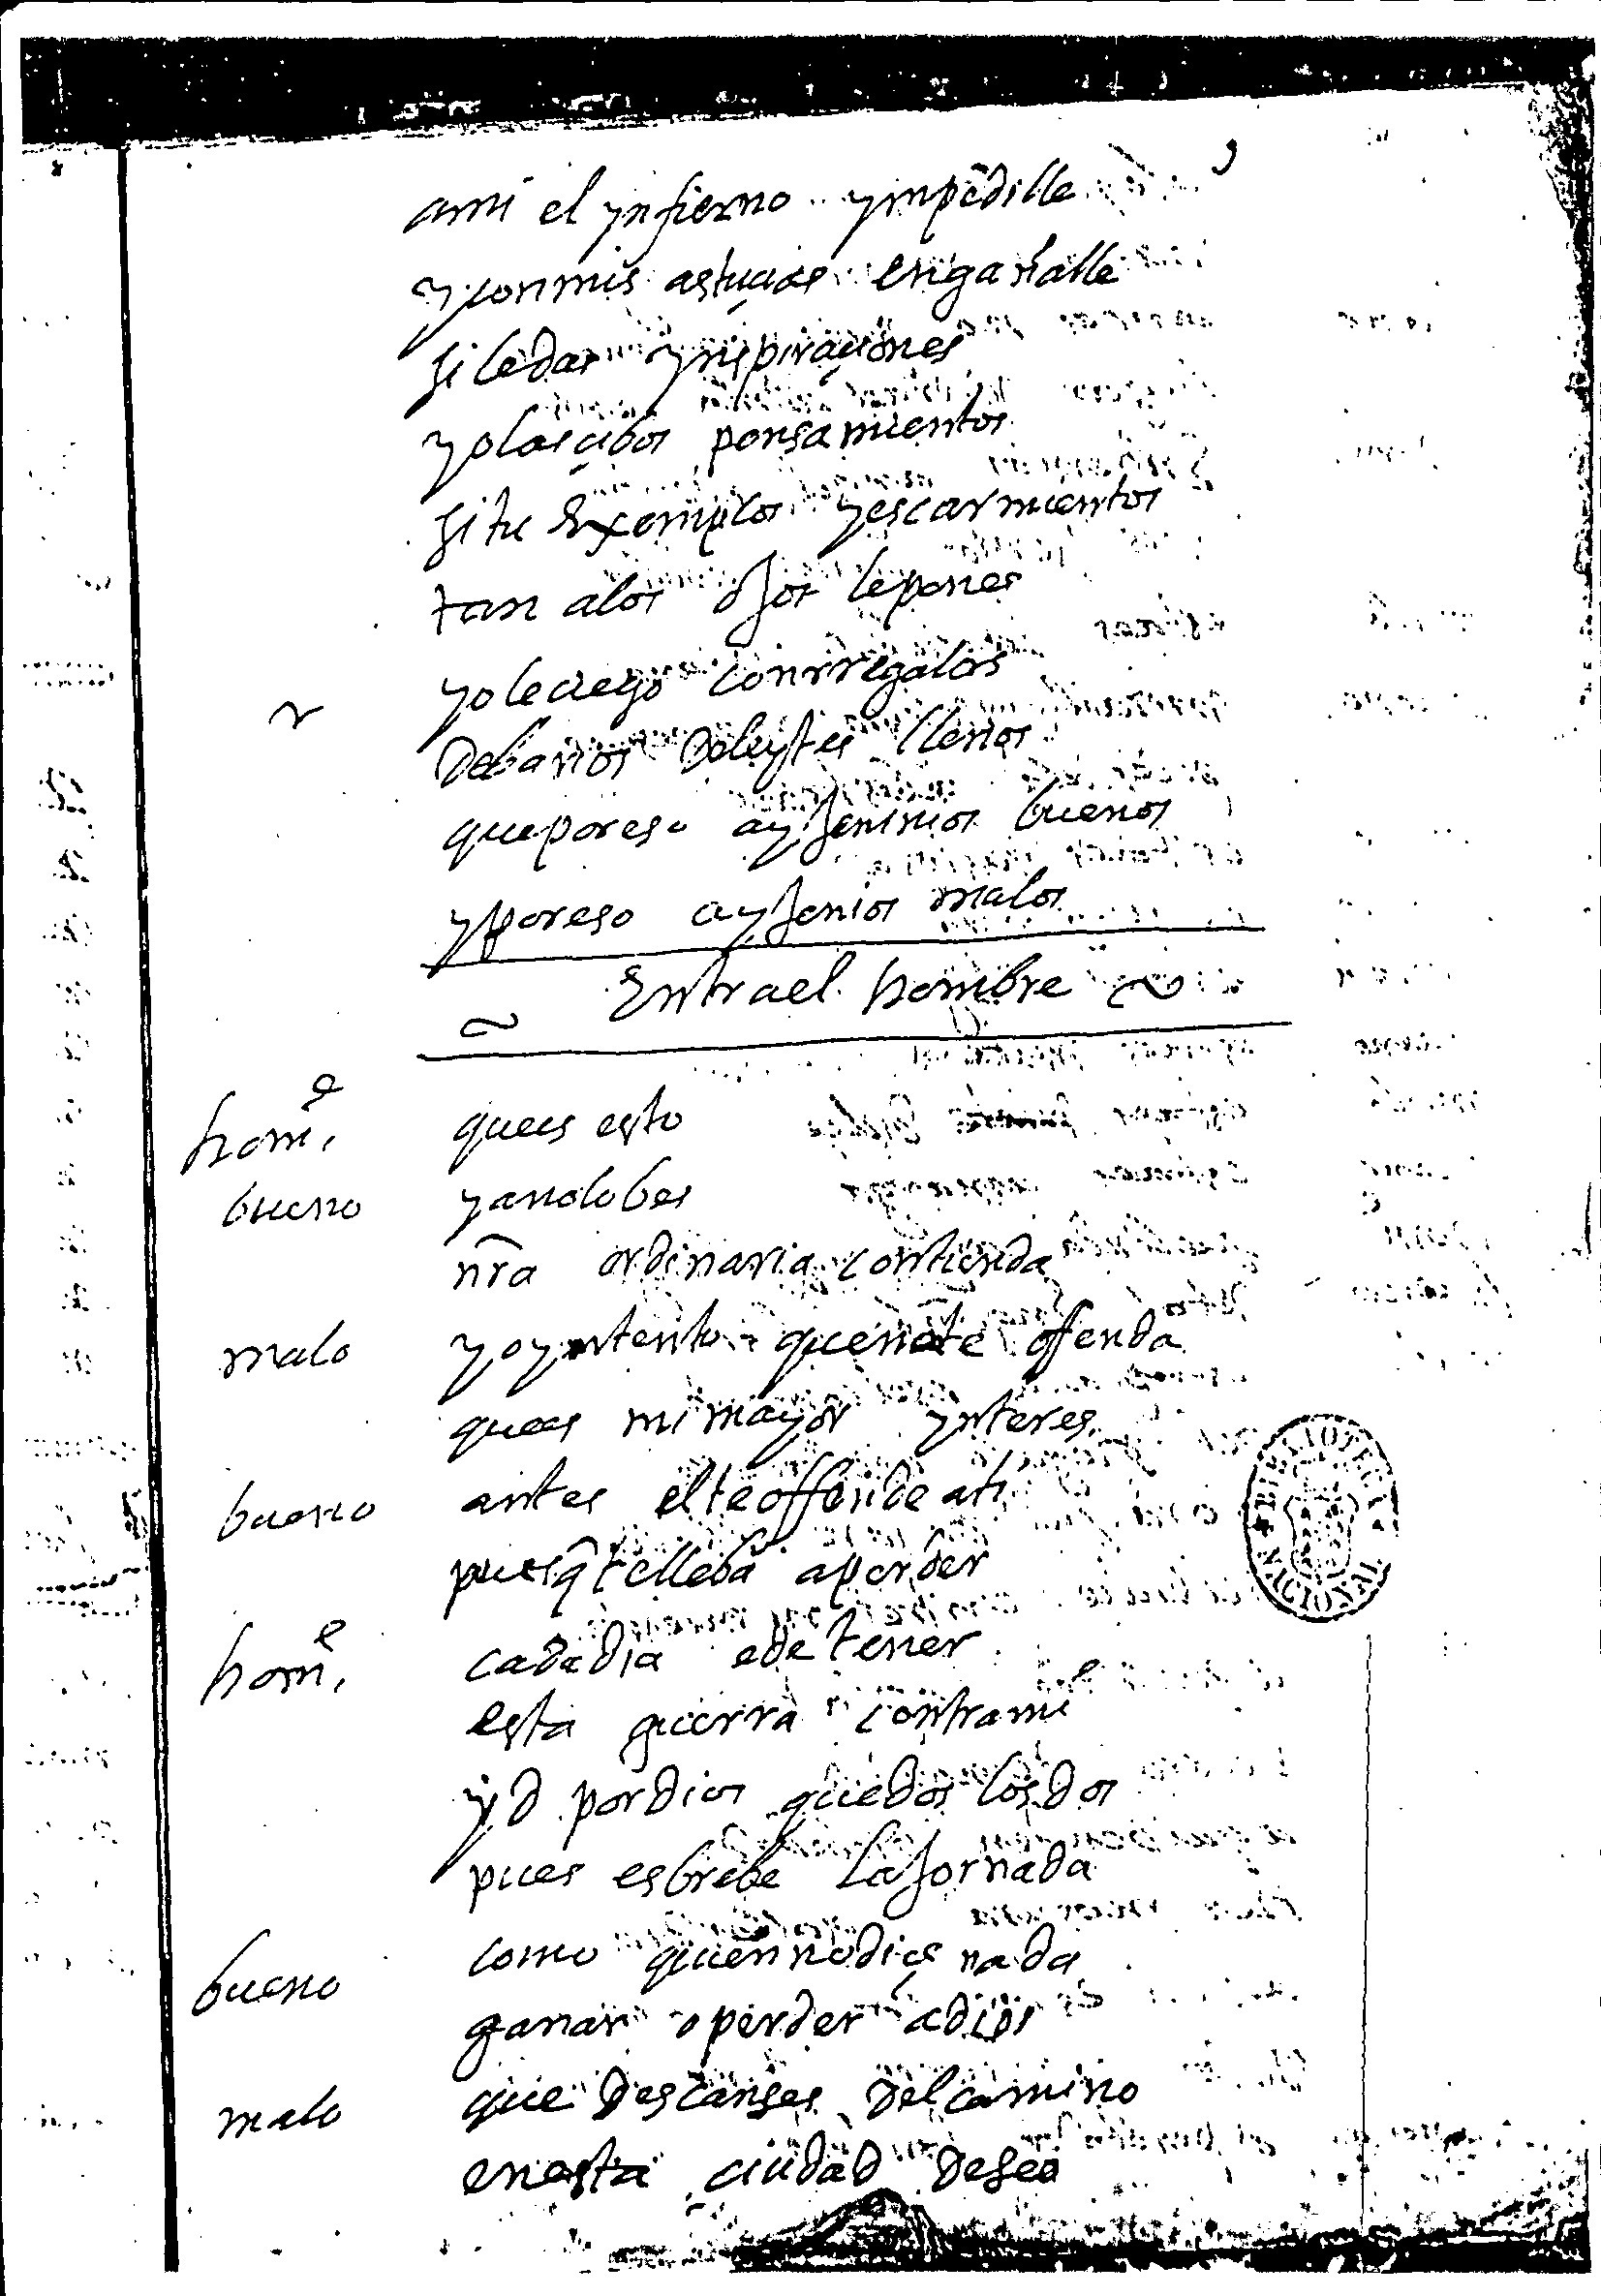 ami el ynfierno ympedille
y con mis astucias engañalle
si le das ynspiraçiones
yo lasçibos pensamientos
si tu exemplos y escarmientos
tan a los ojos le pones
yo le ciego con rregalos
de barios deleytes llenos
que por eso ay jenios buenos
y por eso ay jenios malos
Entra el hombre
home. que es esto
bueno ya no lo bes
nra ordinaria contienda
malo yo yntento que no te offenda
que es mi mayor ynteres
bueno antes el te offende a ti
pues q te lleba a perder
home. cada dia e de tener
esta guerra contra mi
yd por dios quedos los dos
pues es brebe la jornada
bueno como quien no diçe nada
ganar o perder a dios
malo que descanses del camino
en esta ciudad deseo
BIBLIOTECA NACIONAL